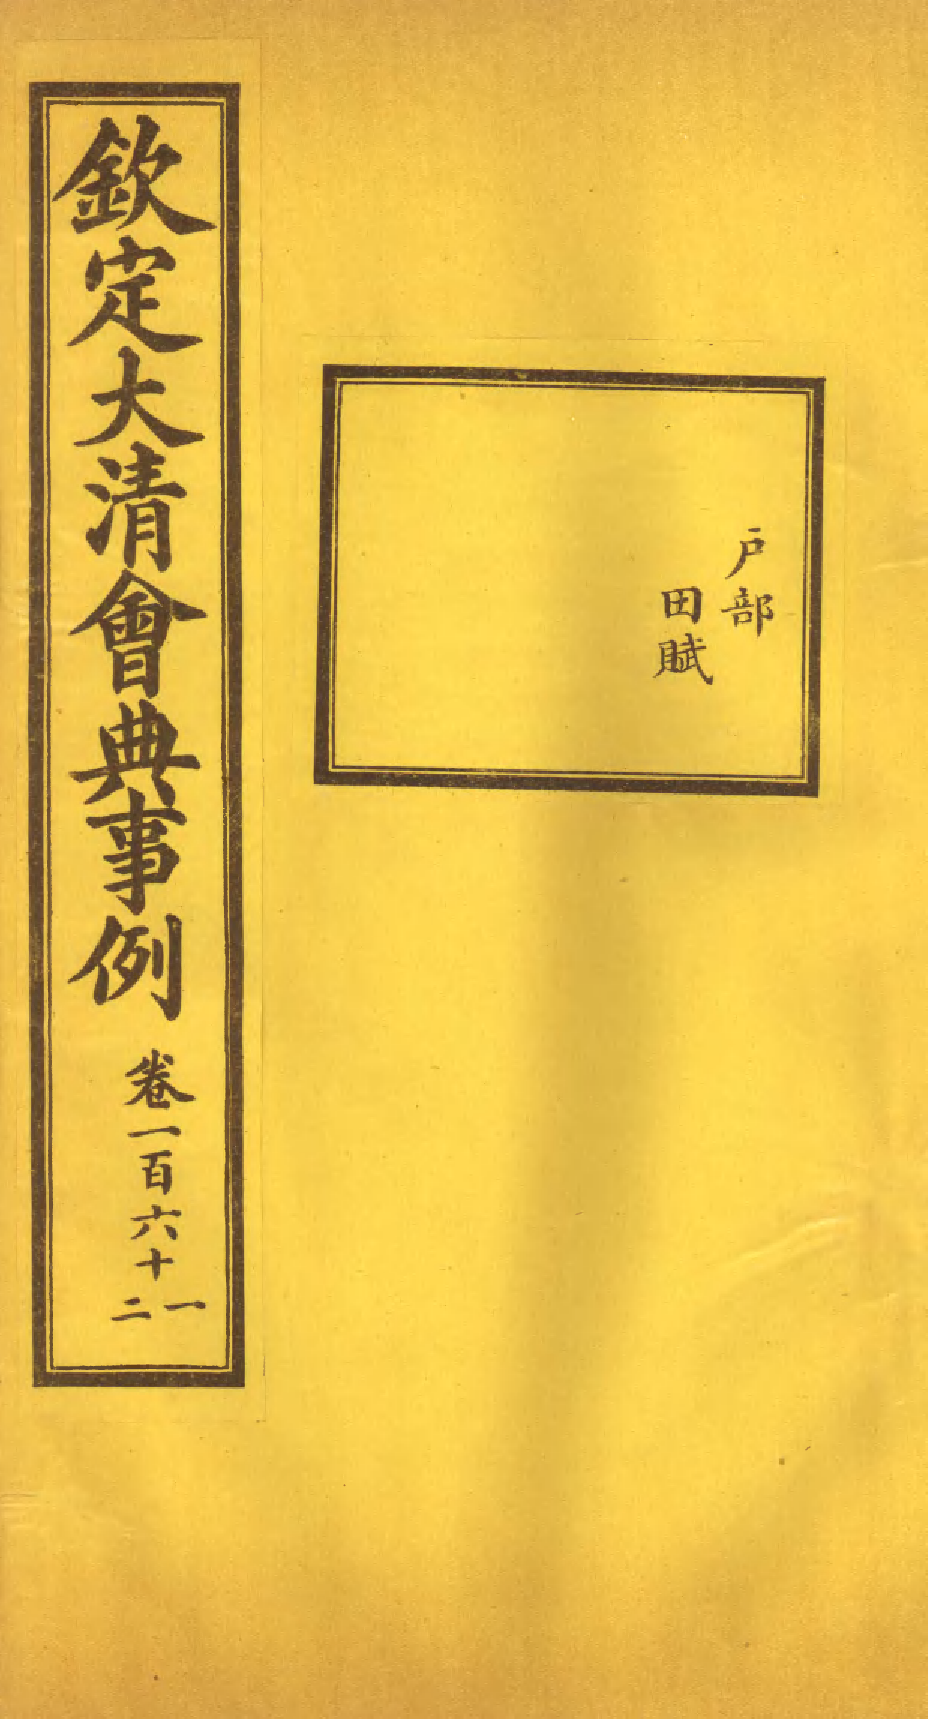 戶部
田賦
欽定大清會典事例 卷一百六十一二